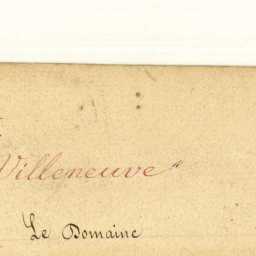 Villeneuve"
Le Domaine